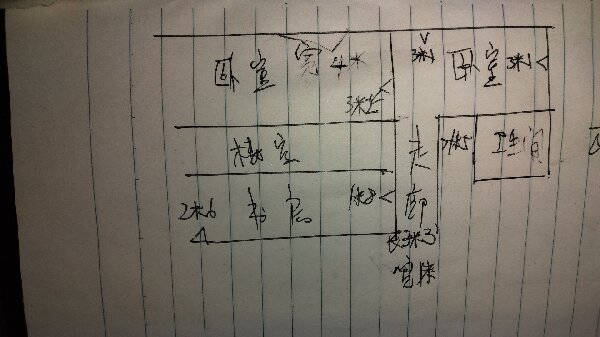 卧室 宽4米
3米2
卧室 3米1
走廊
1米5
卫生间
2米6
书房
1米8
长3米3
宽1米